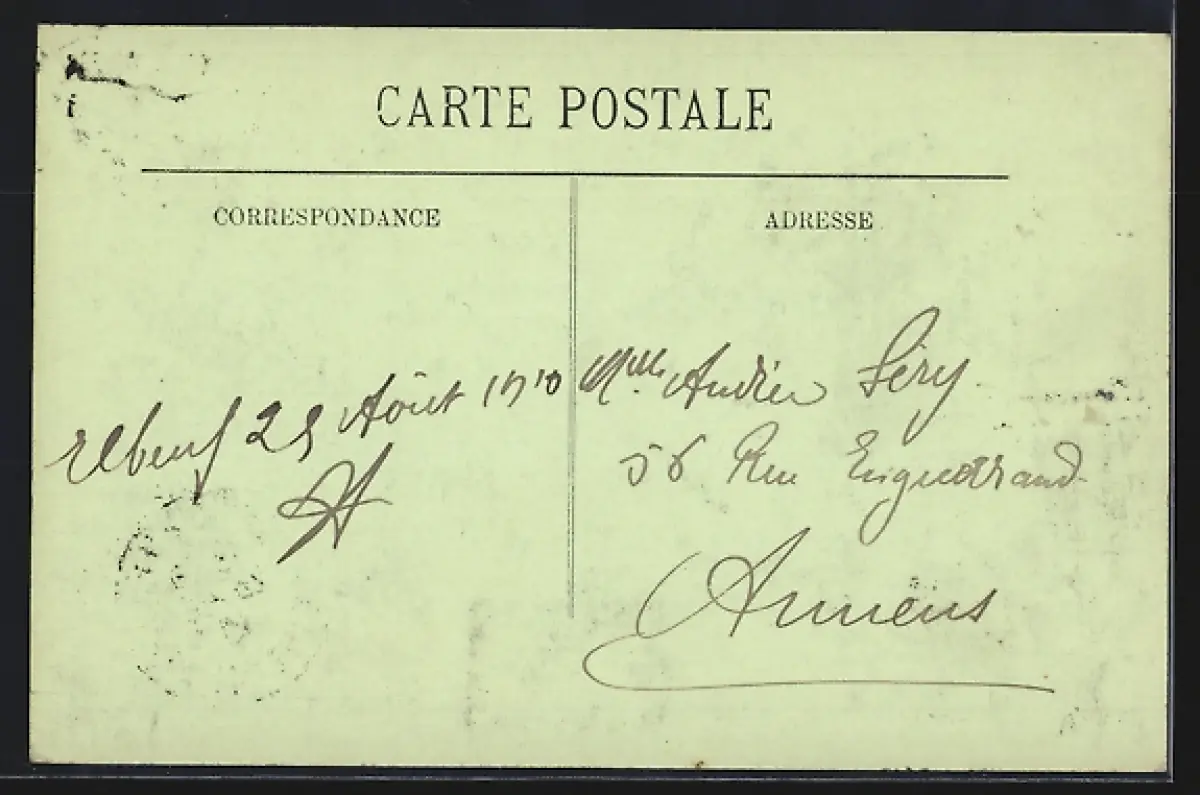 CARTE POSTALE
CORRESPONDANCE
ADRESSE
Elbeuf 25 Août 1910
Mlle Andrée Séry
56 Rue Enguerrand
Amiens